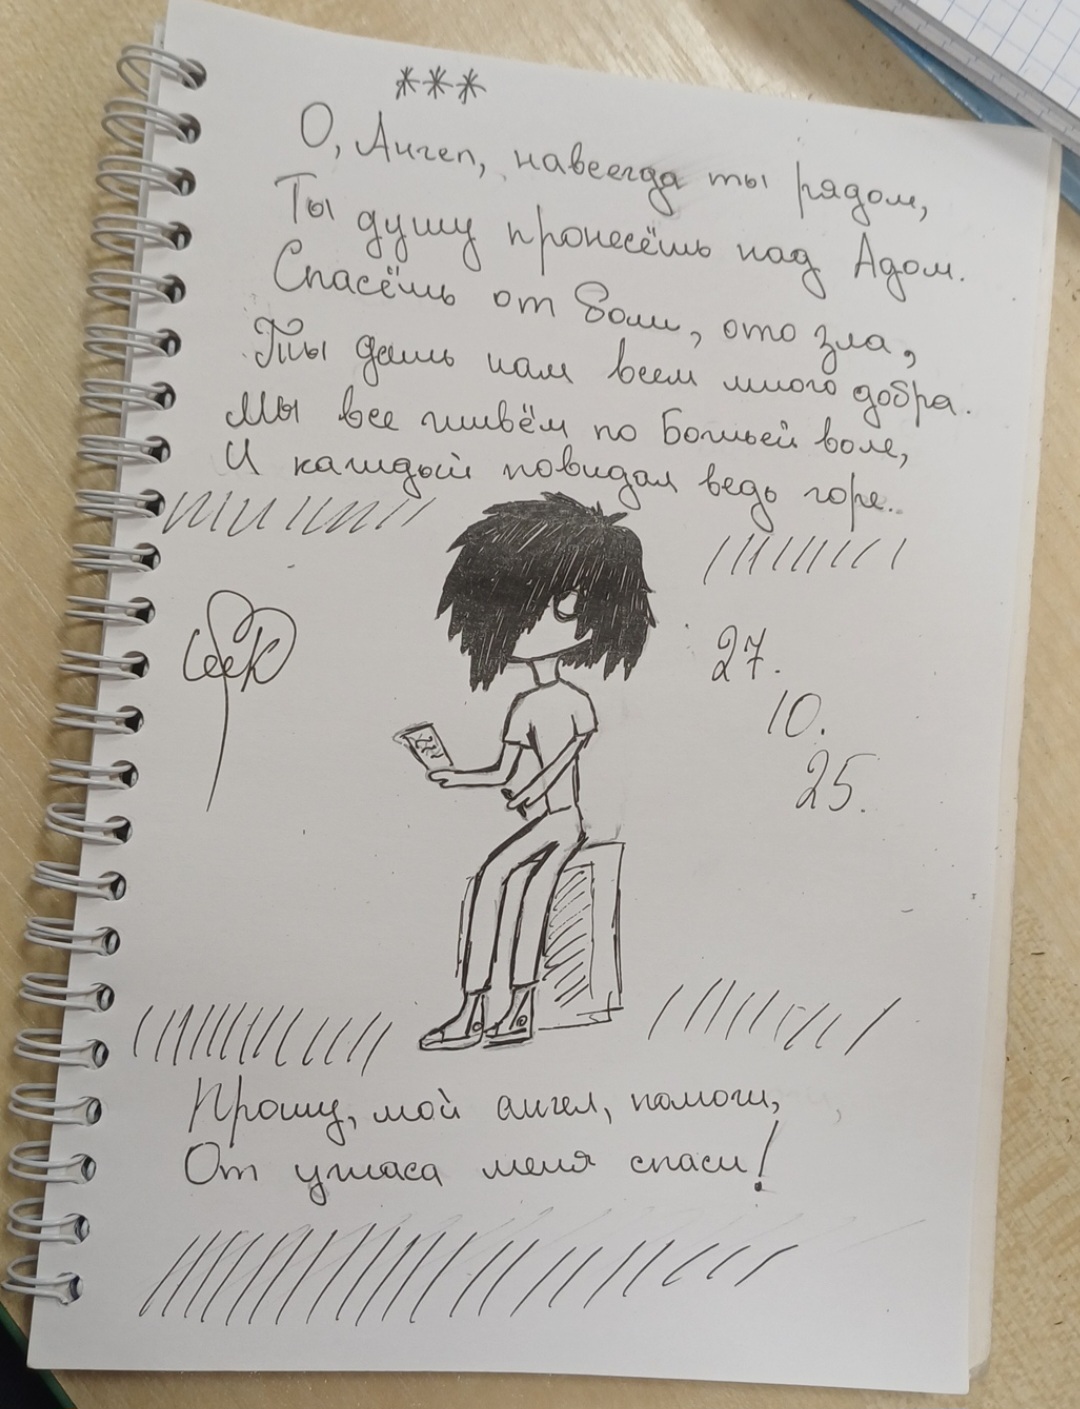 ***
О, Ангел, навсегда ты рядом,
Ты душу пронесёшь над Адом.
Спасёшь от боли, ото зла,
Ты дашь нам всем много добра.
Мы все живём по Божьей воле,
И каждый повидал ведь горе..
27.
10.
25.
Прошу, мой ангел, помоги,
От ужаса меня спаси!